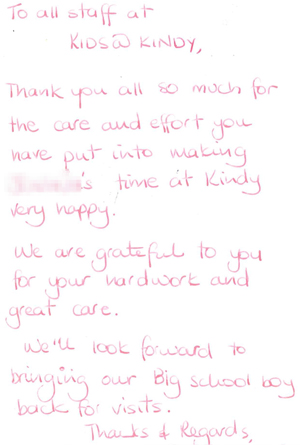 To all staff at
KIDS@KINDY,
Thank you all so much for
the care and effort you
have put into making
's time at Kindy
very happy!
We are grateful to you
for your hardwork and
great care.
We'll look forward to
bringing our Big school boy
back for visits.
Thanks & Regards,